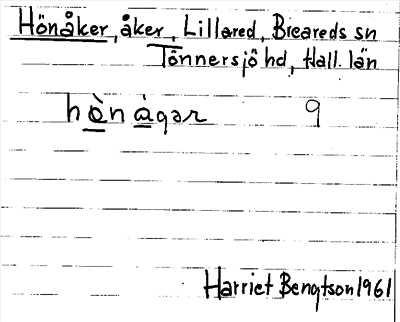 Hönåker, åker, Lillared, Breareds sn
Tönnersjö hd, Hall. län
hò̲nà̲gər 9
Harriet Bengtson 1961